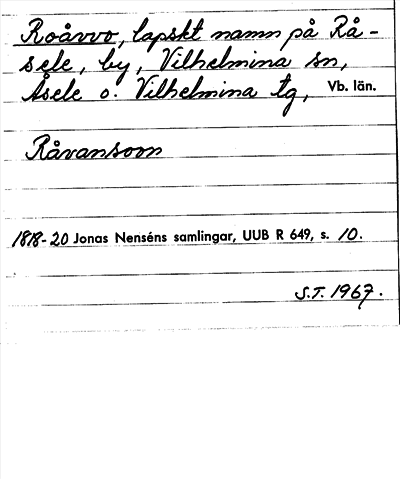 Roåvvo, lapskt namn på Rå-
sele, by, Vilhelmina sn,
Åsele o. Vilhelmina tg, Vb. län.
Råvansoom
1818-20 Jonas Nenséns samlingar, UUB R 649, s. 10.
S.T. 1967.